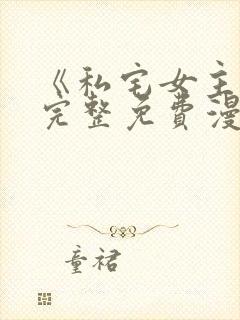 《私宅女主
完整免费漫
童裙